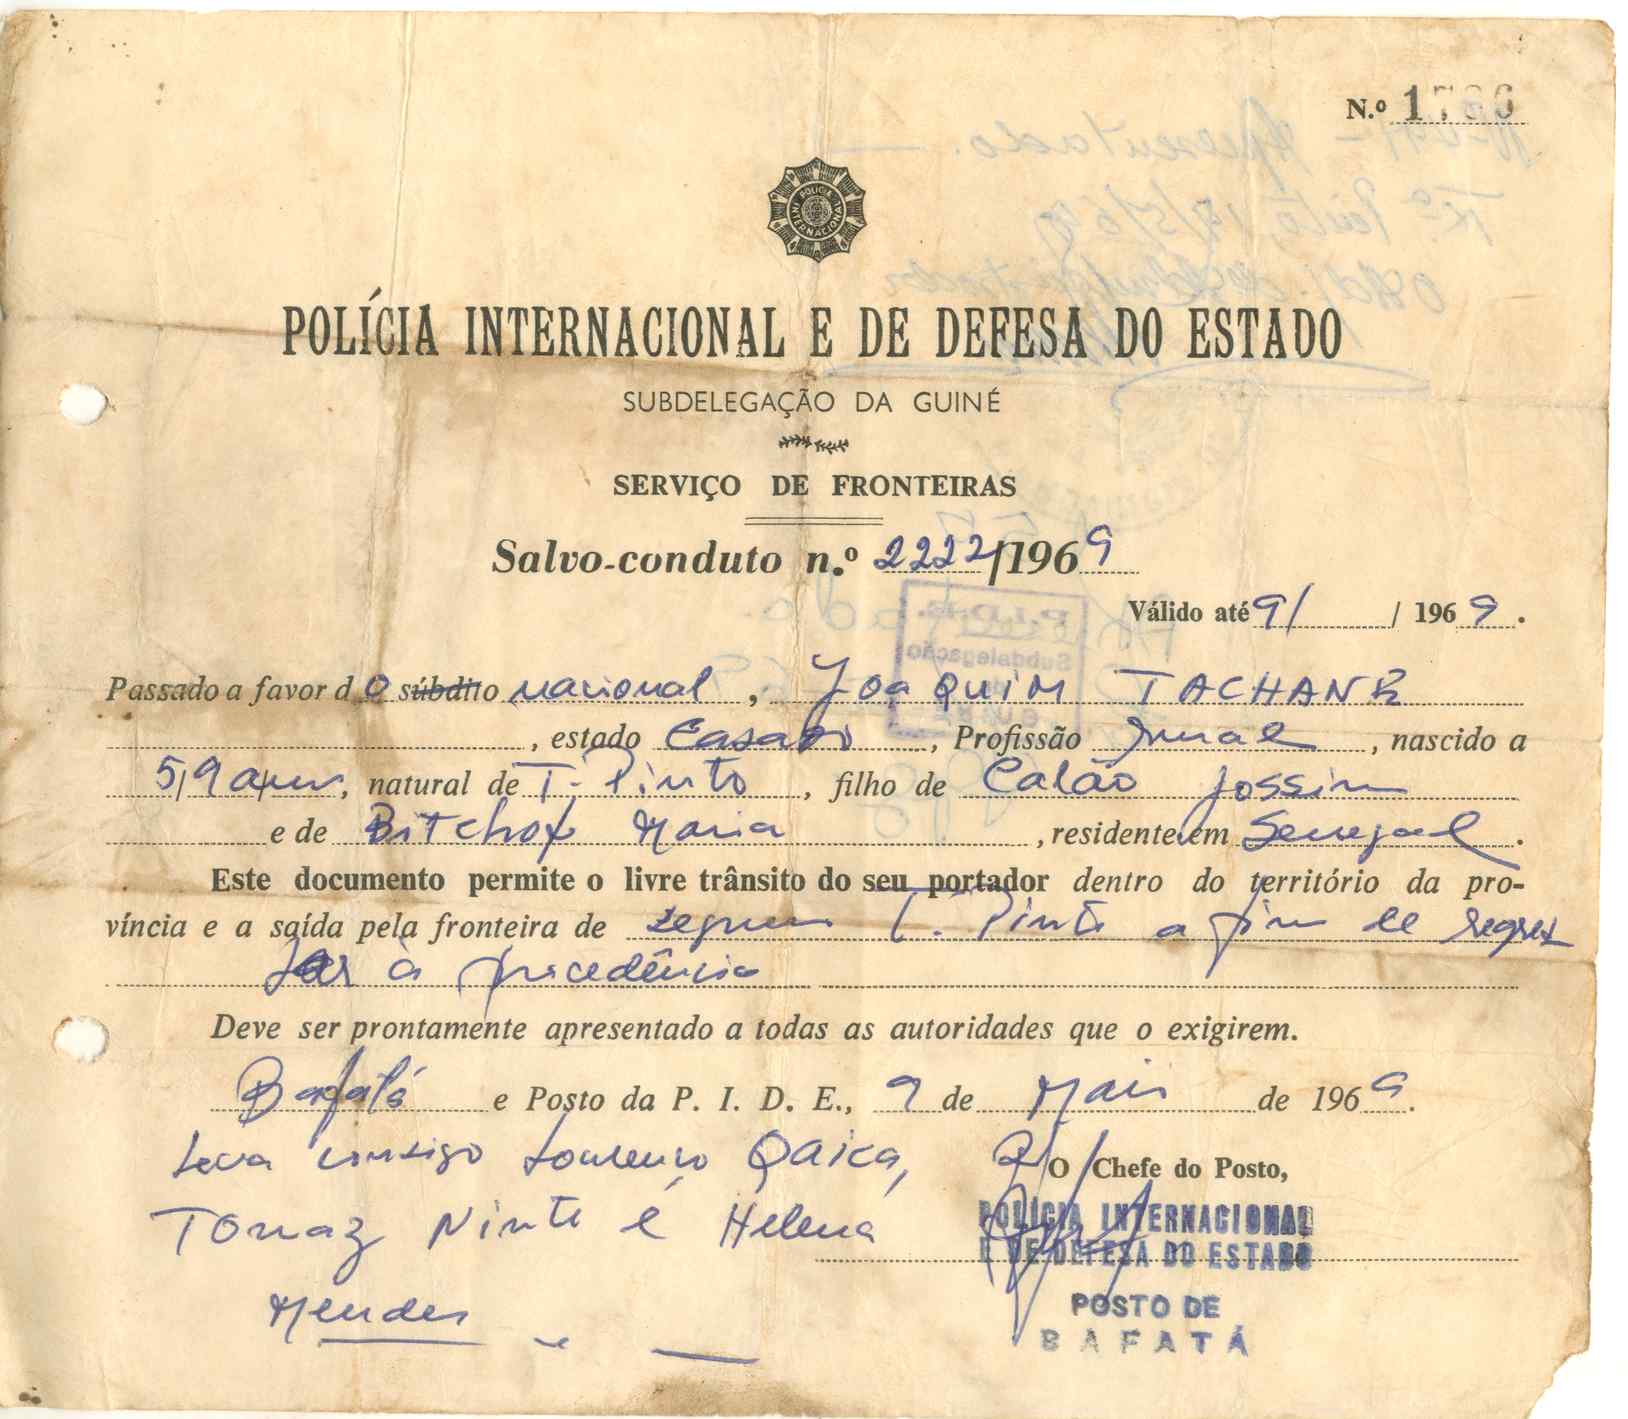 N.º 1786
POLÍCIA INTERNACIONAL
POLÍCIA INTERNACIONAL E DE DEFESA DO ESTADO
SUBDELEGAÇÃO DA GUINÉ
SERVIÇO DE FRONTEIRAS
Salvo-conduto n.º 2222/1969
Válido até 9/ / 1969.
Passado a favor d O súbdito nacional, Joaquim TACHANE
, estado Casado, Profissão Rural, nascido a
59 anos, natural de T. Pinto, filho de Calão Jossim
e de Bitchof Maria, residente em Senegal.
Este documento permite o livre trânsito do seu portador dentro do território da pro-
víncia e a saída pela fronteira de segue T. Pinto a fim de regres
sar à procedência
Deve ser prontamente apresentado a todas as autoridades que o exigirem.
Bafatá e Posto da P. I. D. E., 9 de Maio de 1969.
Leva consigo Lourenço Qaica,
Tomaz Ninte e Helena
Mendes
O Chefe do Posto,
POLÍCIA INTERNACIONAL
E DE DEFESA DO ESTADO
POSTO DE
BAFATÁ